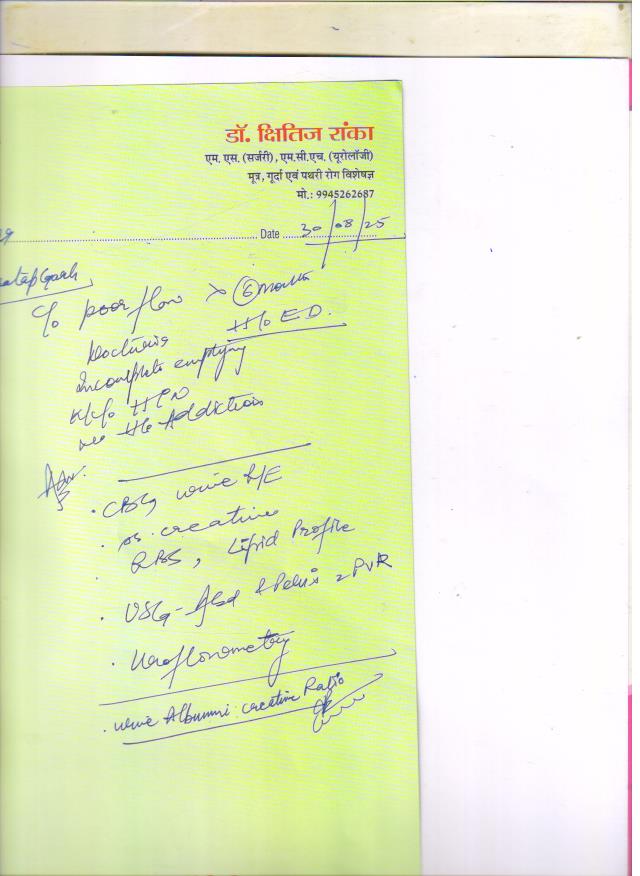 डॉ. क्षितिज रांका
एम. एस. (सर्जरी), एम.सी.एच. (यूरोलॉजी)
मूत्र, गूर्दा एवं पथरी रोग विशेषज्ञ
मो.: 9945262687
Date 30/08/25
c/o poor flow x 6 months
Nocturia H/o ED.
Incomplete emptying
K/c/o HTN
no H/o Addiction
Adv.
· CBC, urine R/E
· s. creatinine
· RBS, Lipid Profile
· USG - Abd & Pelvis c PVR
· Uroflowmetry
· urine Albumin: creatinine Ratio